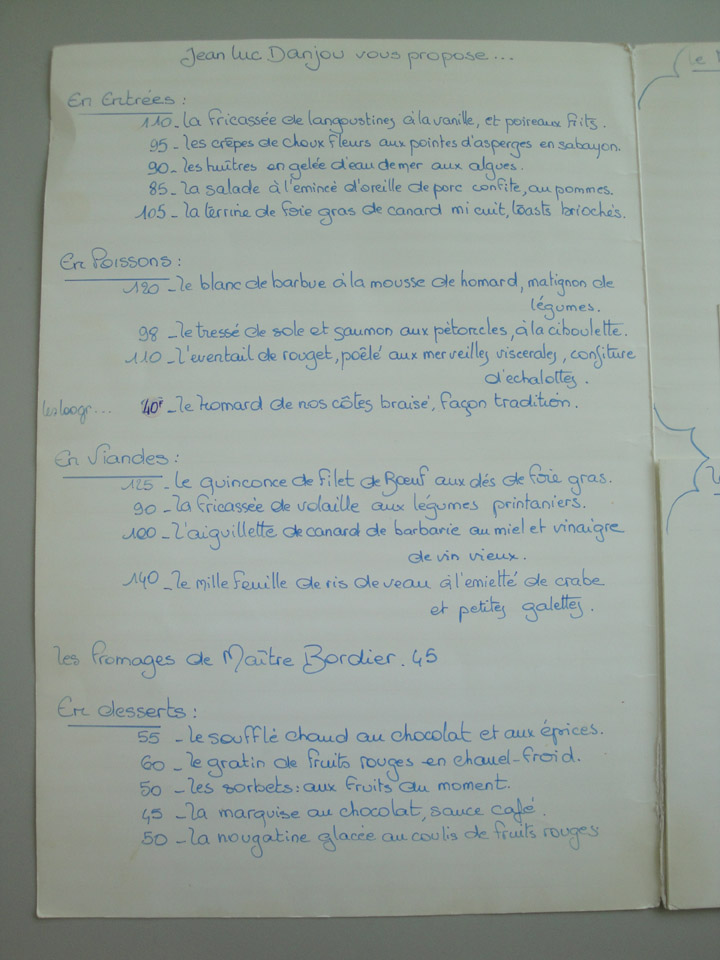 Jean Luc Danjou vous propose...
En Entrées :
110 - la fricassée de langoustines à la vanille, et poireaux frits.
95 - les crêpes de choux fleurs aux pointes d'asperges en sabayon.
90 - les huîtres en gelée d'eau de mer aux algues.
85 - la salade à l'emincé d'oreille de porc confite, au pommes.
105 - la terrine de foie gras de canard mi cuit, toasts briochés.
En Poissons :
120 - le blanc de barbue à la mousse de homard, matignon de
légumes.
98 - le tressé de sole et saumon aux pétoncles, à la ciboulette.
110 - l'eventail de rouget, poêlé aux merveilles viscerales, confiture
d'echalottes.
les 100gr... 40F - le homard de nos côtes braisé, façon tradition.
En Viandes :
125 - le quinconce de filet de Bœuf aux dés de foie gras.
90 - la fricassée de volaille aux légumes printaniers.
100 - l'aiguillette de canard de barbarie au miel et vinaigre
de vin vieux.
140 - le mille feuille de ris de veau à l'emietté de crabe
et petites galettes.
les fromages de Maître Bordier. 45
En desserts :
55 - le soufflé chaud au chocolat et aux épices.
60 - le gratin de fruits rouges en chaud-froid.
50 - les sorbets: aux fruits du moment.
45 - la marquise au chocolat, sauce café.
50 - la nougatine glacée au coulis de fruits rouges